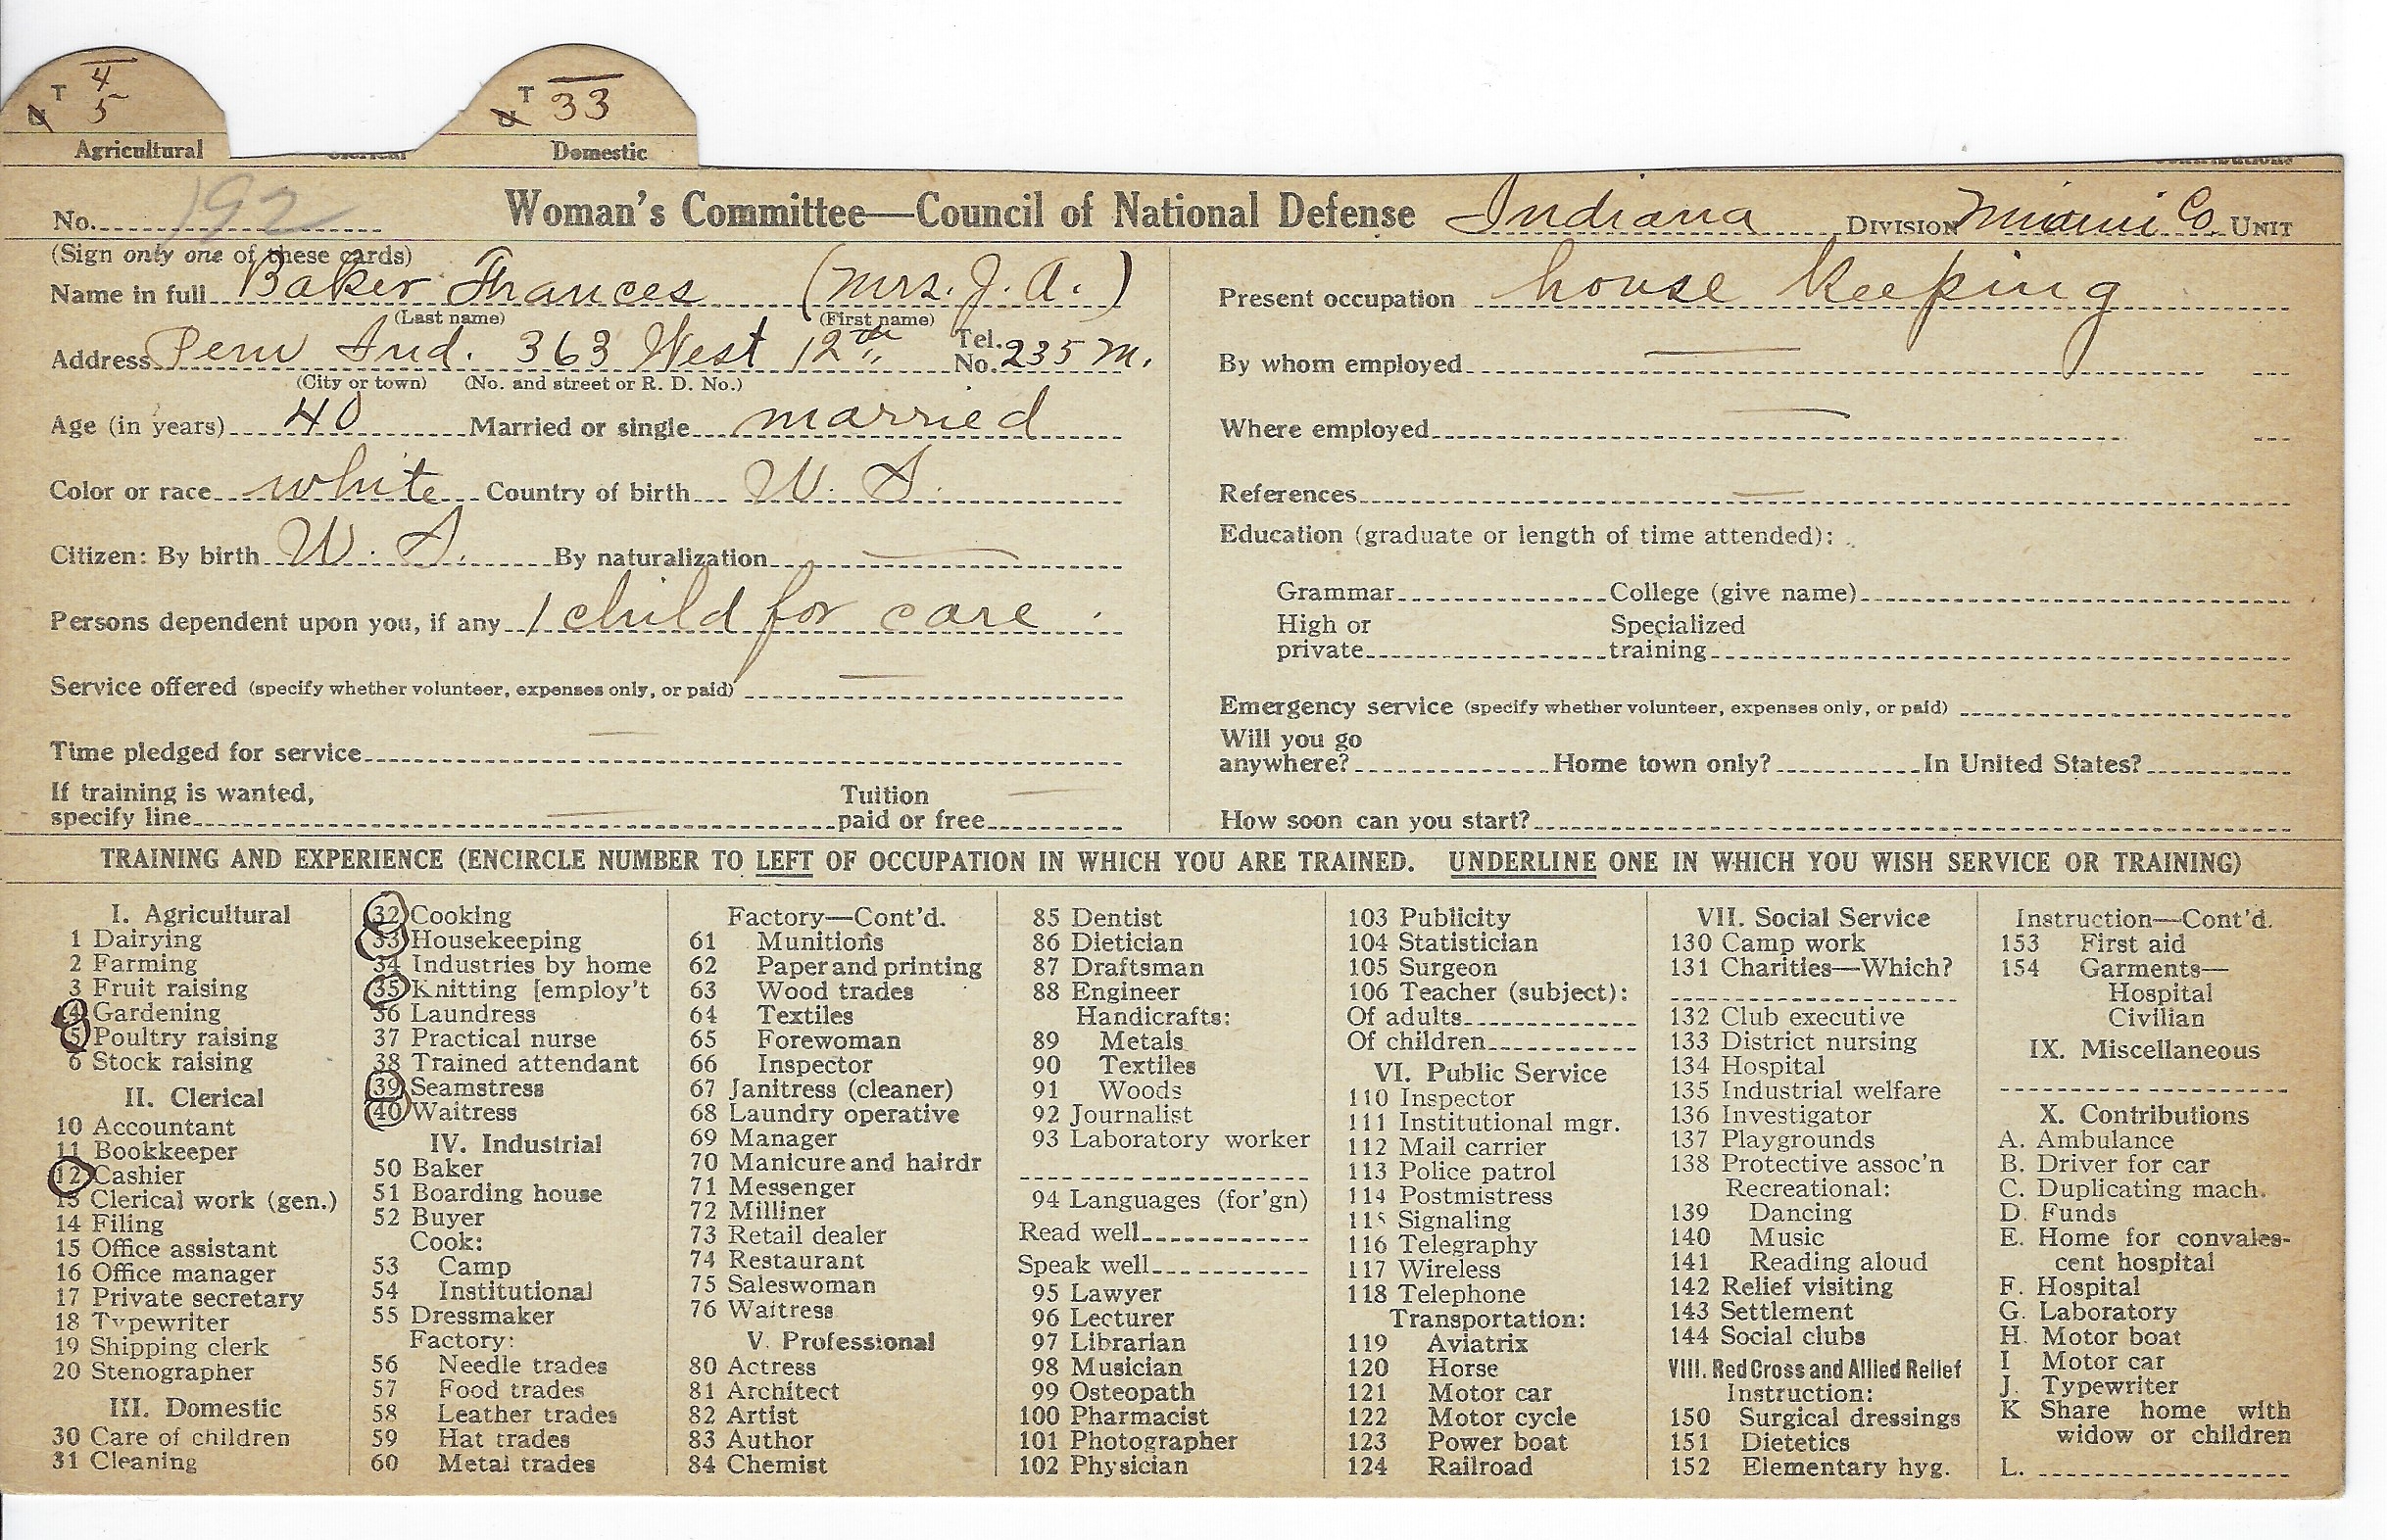 T 4 T 33
U 5 U
Agricultural Clerical Domestic Contributions
No. 192 Woman's Committee—Council of National Defense Indiana DIVISION Miami Co. UNIT
(Sign only one of these cards)
Name in full Baker Frances (Mrs. J. A.)
(Last name) (First name)
Address Peru Ind. 363 West 12th Tel. No. 235 M.
(City or town) (No. and street or R. D. No.)
Age (in years) 40 Married or single married
Color or race white Country of birth U. S.
Citizen: By birth U. S. By naturalization —
Persons dependent upon you, if any 1 child for care.
Service offered (specify whether volunteer, expenses only, or paid) —
Time pledged for service —
If training is wanted,
specify line — Tuition paid or free —
Present occupation house keeping
By whom employed —
Where employed —
References —
Education (graduate or length of time attended):
Grammar College (give name)
High or Specialized
private training
Emergency service (specify whether volunteer, expenses only, or paid)
Will you go
anywhere? Home town only? In United States?
How soon can you start?
TRAINING AND EXPERIENCE (ENCIRCLE NUMBER TO LEFT OF OCCUPATION IN WHICH YOU ARE TRAINED. UNDERLINE ONE IN WHICH YOU WISH SERVICE OR TRAINING)
I. Agricultural
1 Dairying
2 Farming
3 Fruit raising
4 Gardening
5 Poultry raising
6 Stock raising
II. Clerical
10 Accountant
11 Bookkeeper
12 Cashier
13 Clerical work (gen.)
14 Filing
15 Office assistant
16 Office manager
17 Private secretary
18 Typewriter
19 Shipping clerk
20 Stenographer
III. Domestic
30 Care of children
31 Cleaning
32 Cooking
33 Housekeeping
34 Industries by home
35 Knitting [employ't
36 Laundress
37 Practical nurse
38 Trained attendant
39 Seamstress
40 Waitress
IV. Industrial
50 Baker
51 Boarding house
52 Buyer
Cook:
53 Camp
54 Institutional
55 Dressmaker
Factory:
56 Needle trades
57 Food trades
58 Leather trades
59 Hat trades
60 Metal trades
Factory—Cont'd.
61 Munitions
62 Paper and printing
63 Wood trades
64 Textiles
65 Forewoman
66 Inspector
67 Janitress (cleaner)
68 Laundry operative
69 Manager
70 Manicure and hairdr
71 Messenger
72 Milliner
73 Retail dealer
74 Restaurant
75 Saleswoman
76 Waitress
V. Professional
80 Actress
81 Architect
82 Artist
83 Author
84 Chemist
85 Dentist
86 Dietician
87 Draftsman
88 Engineer
Handicrafts:
89 Metals
90 Textiles
91 Woods
92 Journalist
93 Laboratory worker
94 Languages (for'gn)
Read well
Speak well
95 Lawyer
96 Lecturer
97 Librarian
98 Musician
99 Osteopath
100 Pharmacist
101 Photographer
102 Physician
103 Publicity
104 Statistician
105 Surgeon
106 Teacher (subject):
Of adults
Of children
VI. Public Service
110 Inspector
111 Institutional mgr.
112 Mail carrier
113 Police patrol
114 Postmistress
115 Signaling
116 Telegraphy
117 Wireless
118 Telephone
Transportation:
119 Aviatrix
120 Horse
121 Motor car
122 Motor cycle
123 Power boat
124 Railroad
VII. Social Service
130 Camp work
131 Charities—Which?
132 Club executive
133 District nursing
134 Hospital
135 Industrial welfare
136 Investigator
137 Playgrounds
138 Protective assoc'n
Recreational:
139 Dancing
140 Music
141 Reading aloud
142 Relief visiting
143 Settlement
144 Social clubs
VIII. Red Cross and Allied Relief
Instruction:
150 Surgical dressings
151 Dietetics
152 Elementary hyg.
Instruction—Cont'd.
153 First aid
154 Garments—
Hospital
Civilian
IX. Miscellaneous
X. Contributions
A. Ambulance
B. Driver for car
C. Duplicating mach.
D. Funds
E. Home for convales-
cent hospital
F. Hospital
G. Laboratory
H. Motor boat
I Motor car
J. Typewriter
K Share home with
widow or children
L.